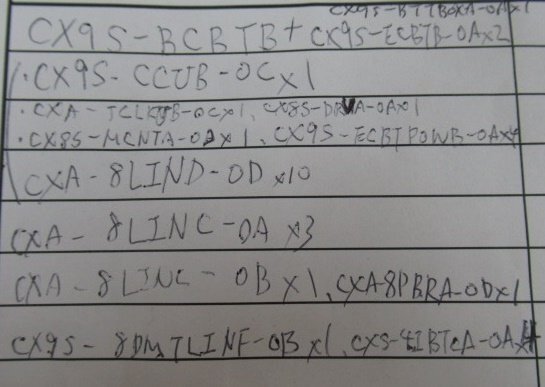 CX9S-BTTBOXA-0A x1
CX9S-BCBTB + CX9S-ECBTB-0A x2
・CX9S-CCUB-0C x1
・CXA-TCLKUB-0C x1、CX8S-DRVA-0A x1
・CX8S-MCNTA-0A x1、CX9S-ECBTPOWB-0A x4
CXA-8LIND-0D x10
CXA-8LINC-0A x3
CXA-8LINC-0B x1、CXA-8PBRA-0D x1
CX9S-8DMTLINF-0B x1、CXS-4IBTCA-0A